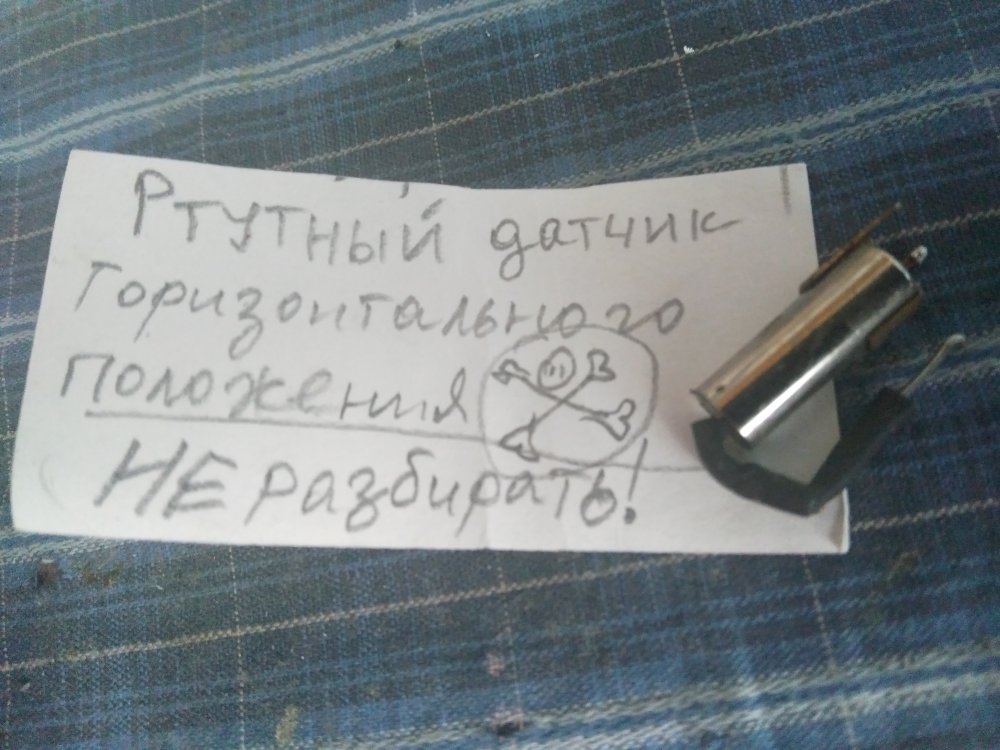 Ртутный датчик
Горизонтального
положения
НЕ разбирать!